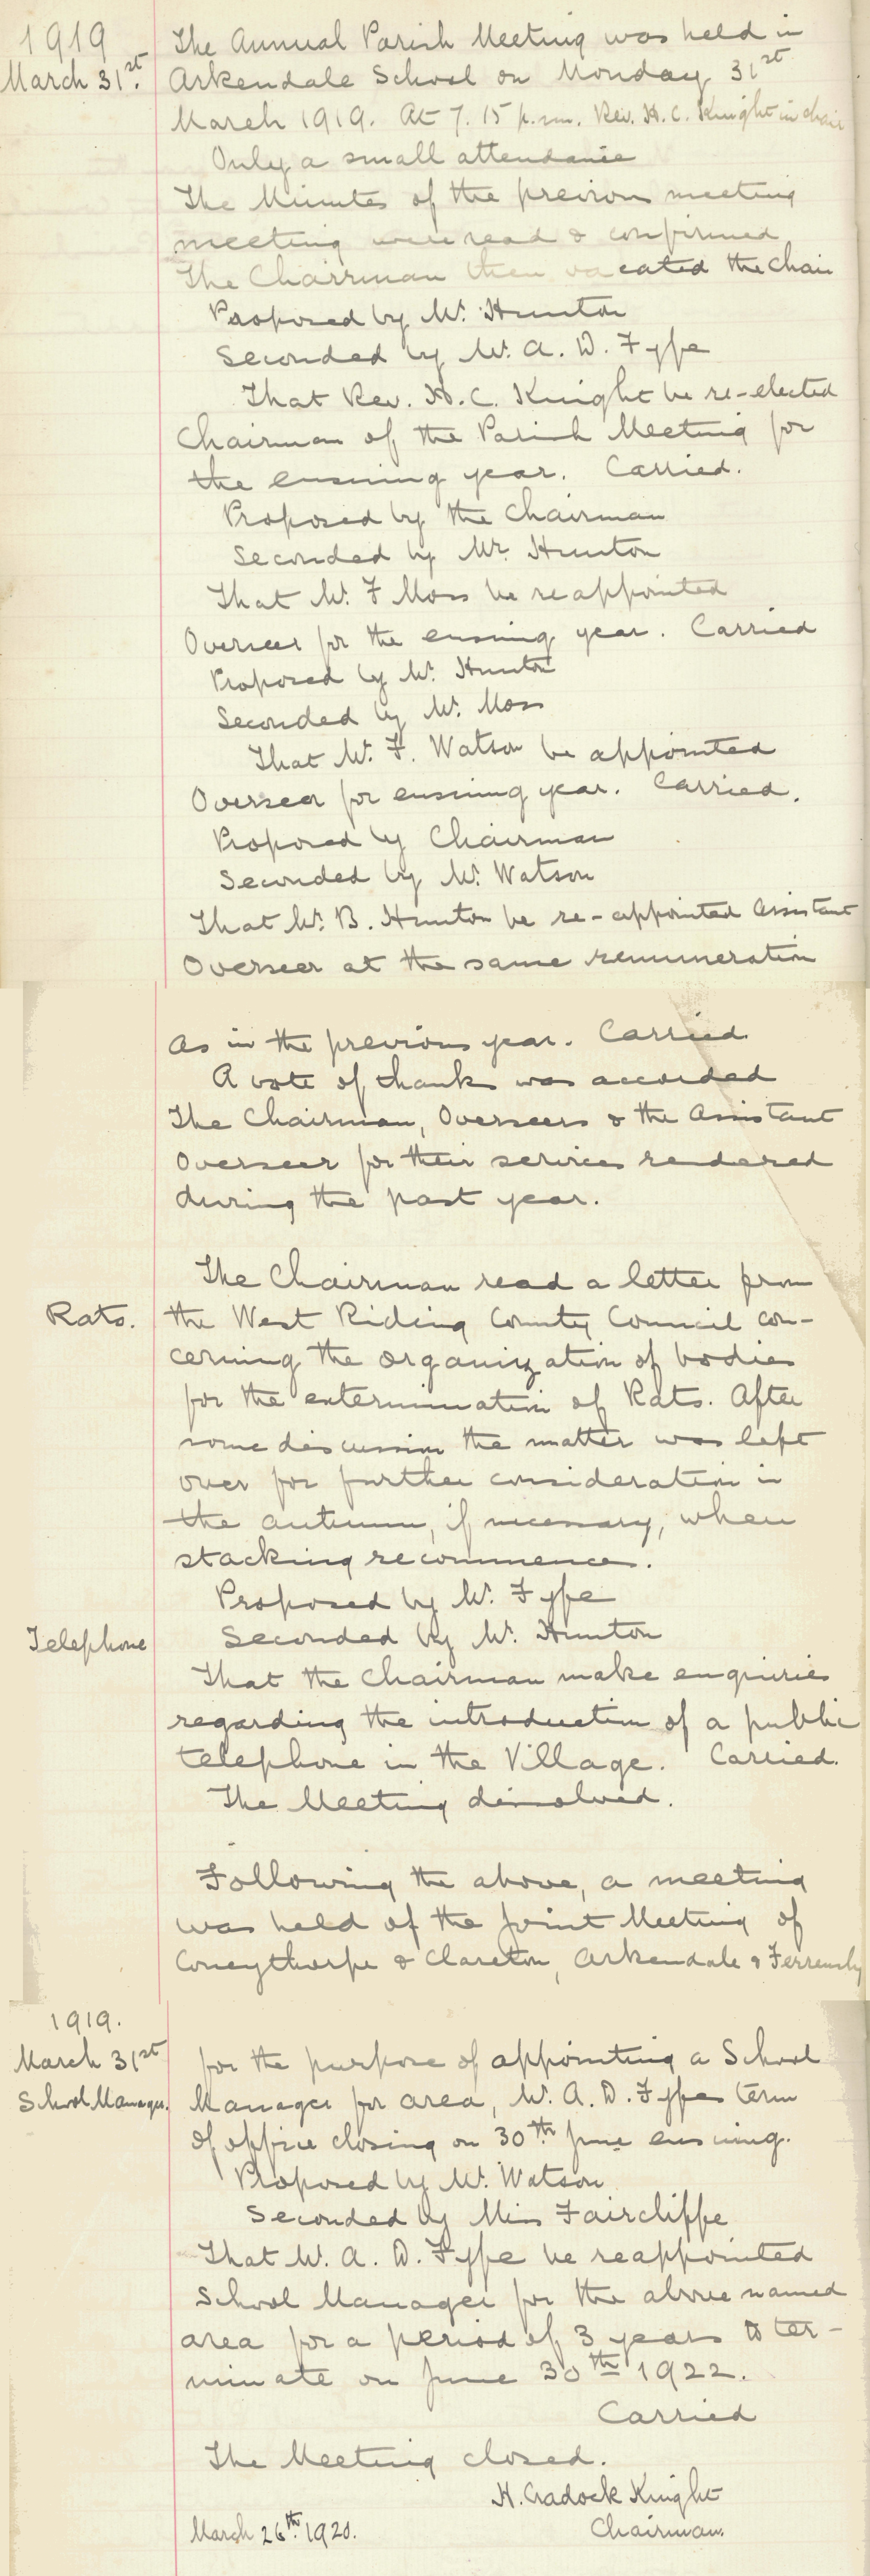 1919
March 31st.
The Annual Parish Meeting was held in
Arkendale School on Monday 31st
March 1919. At 7.15 p.m. Rev. H. C. Knight in chair
Only a small attendance
The Minutes of the previous meeting
meeting were read & confirmed
The Chairman then vacated the chair
Proposed by Mr. Hunton
Seconded by Mr. A. D. Fype
That Rev. H. C. Knight be re-elected
Chairman of the Parish Meeting for
the ensuing year. Carried.
Proposed by the Chairman
Seconded by Mr. Hunton
That Mr. F Moss be reappointed
Overseer for the ensuing year. Carried
Proposed by Mr. Hunton
Seconded by Mr. Moss
That Mr. F. Watson be appointed
Overseer for ensuing year. Carried.
Proposed by Chairman
Seconded by Mr. Watson
That Mr. B. Hunton be re-appointed Assistant
Overseer at the same remuneration
as in the previous year. Carried
A vote of thanks was accorded
The Chairman, Overseers & the Assistant
Overseer for their services rendered
during the past year.
The Chairman read a letter from
Rats.
the West Riding County Council con-
cerning the organization of bodies
for the extermination of Rats. After
some discussion the matter was left
over for further consideration in
the autumn, if necessary, when
stacking recommences.
Proposed by Mr. Fype
Telephone
Seconded by Mr. Hunton
That the Chairman make enquiries
regarding the introduction of a public
telephone in the Village. Carried.
The Meeting dissolved.
Following the above, a meeting
was held of the Joint Meeting of
Coneythorpe & Clareton, Arkendale & Ferrensby
1919.
March 31st
School Manager.
for the purpose of appointing a School
Manager for area, Mr. A. D. Fypes term
of office closing on 30th June ensuing.
Proposed by Mr. Watson
Seconded by Miss Faircliffe
That Mr. A. D. Fype be reappointed
School Manager for the above named
area for a period of 3 years to ter-
minate on June 30th 1922.
Carried
The Meeting closed.
H. Cradock Knight
March 26th. 1920.
Chairman.